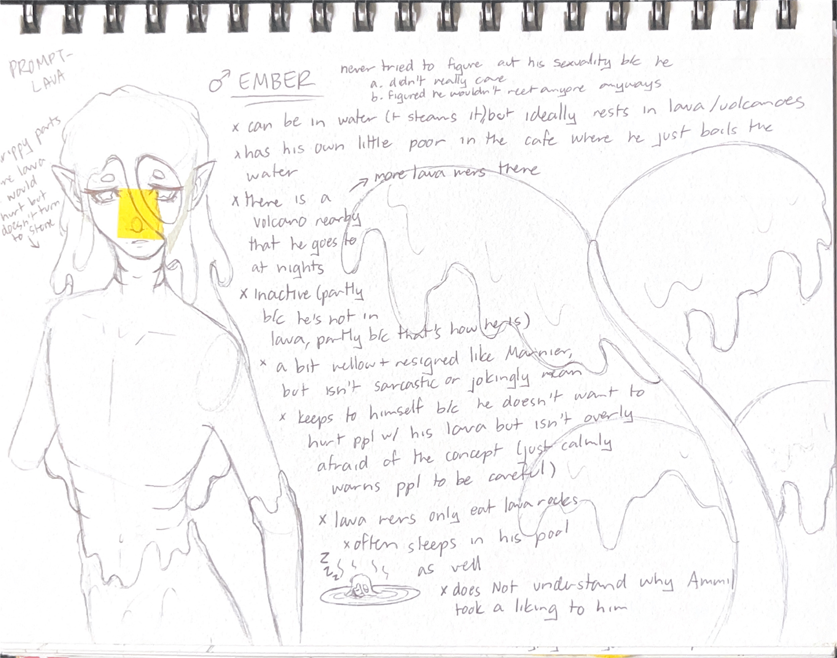 PROMPT-
LAVA
♂ EMBER
never tried to figure out his sexuality b/c he
a. didn't really care
b. Figured he wouldn't meet anyone anyways
x can be in water (+ steams it) but ideally rests in lava/volcanoes
x has his own little poor in the cafe where he just boils the
water
→ more lava mers there
drippy parts
lava
would
hurt but
doesn't turn
to stone
x there is a
volcano nearby
that he goes to
at nights
x Inactive (partly
b/c he's not in
lava, partly b/c that's how he is)
x a bit mellow + resigned like Marinier,
but isn't sarcastic or jokingly mean
x keeps to himself b/c he doesn't want to
hurt ppl w/ his lava but isn't overly
afraid of the concept (just calmly
warns ppl to be careful)
x lava mers only eat lava rocks
x often sleeps in his pool
as well
z
z
zz
x does Not understand why Ammi
took a liking to him